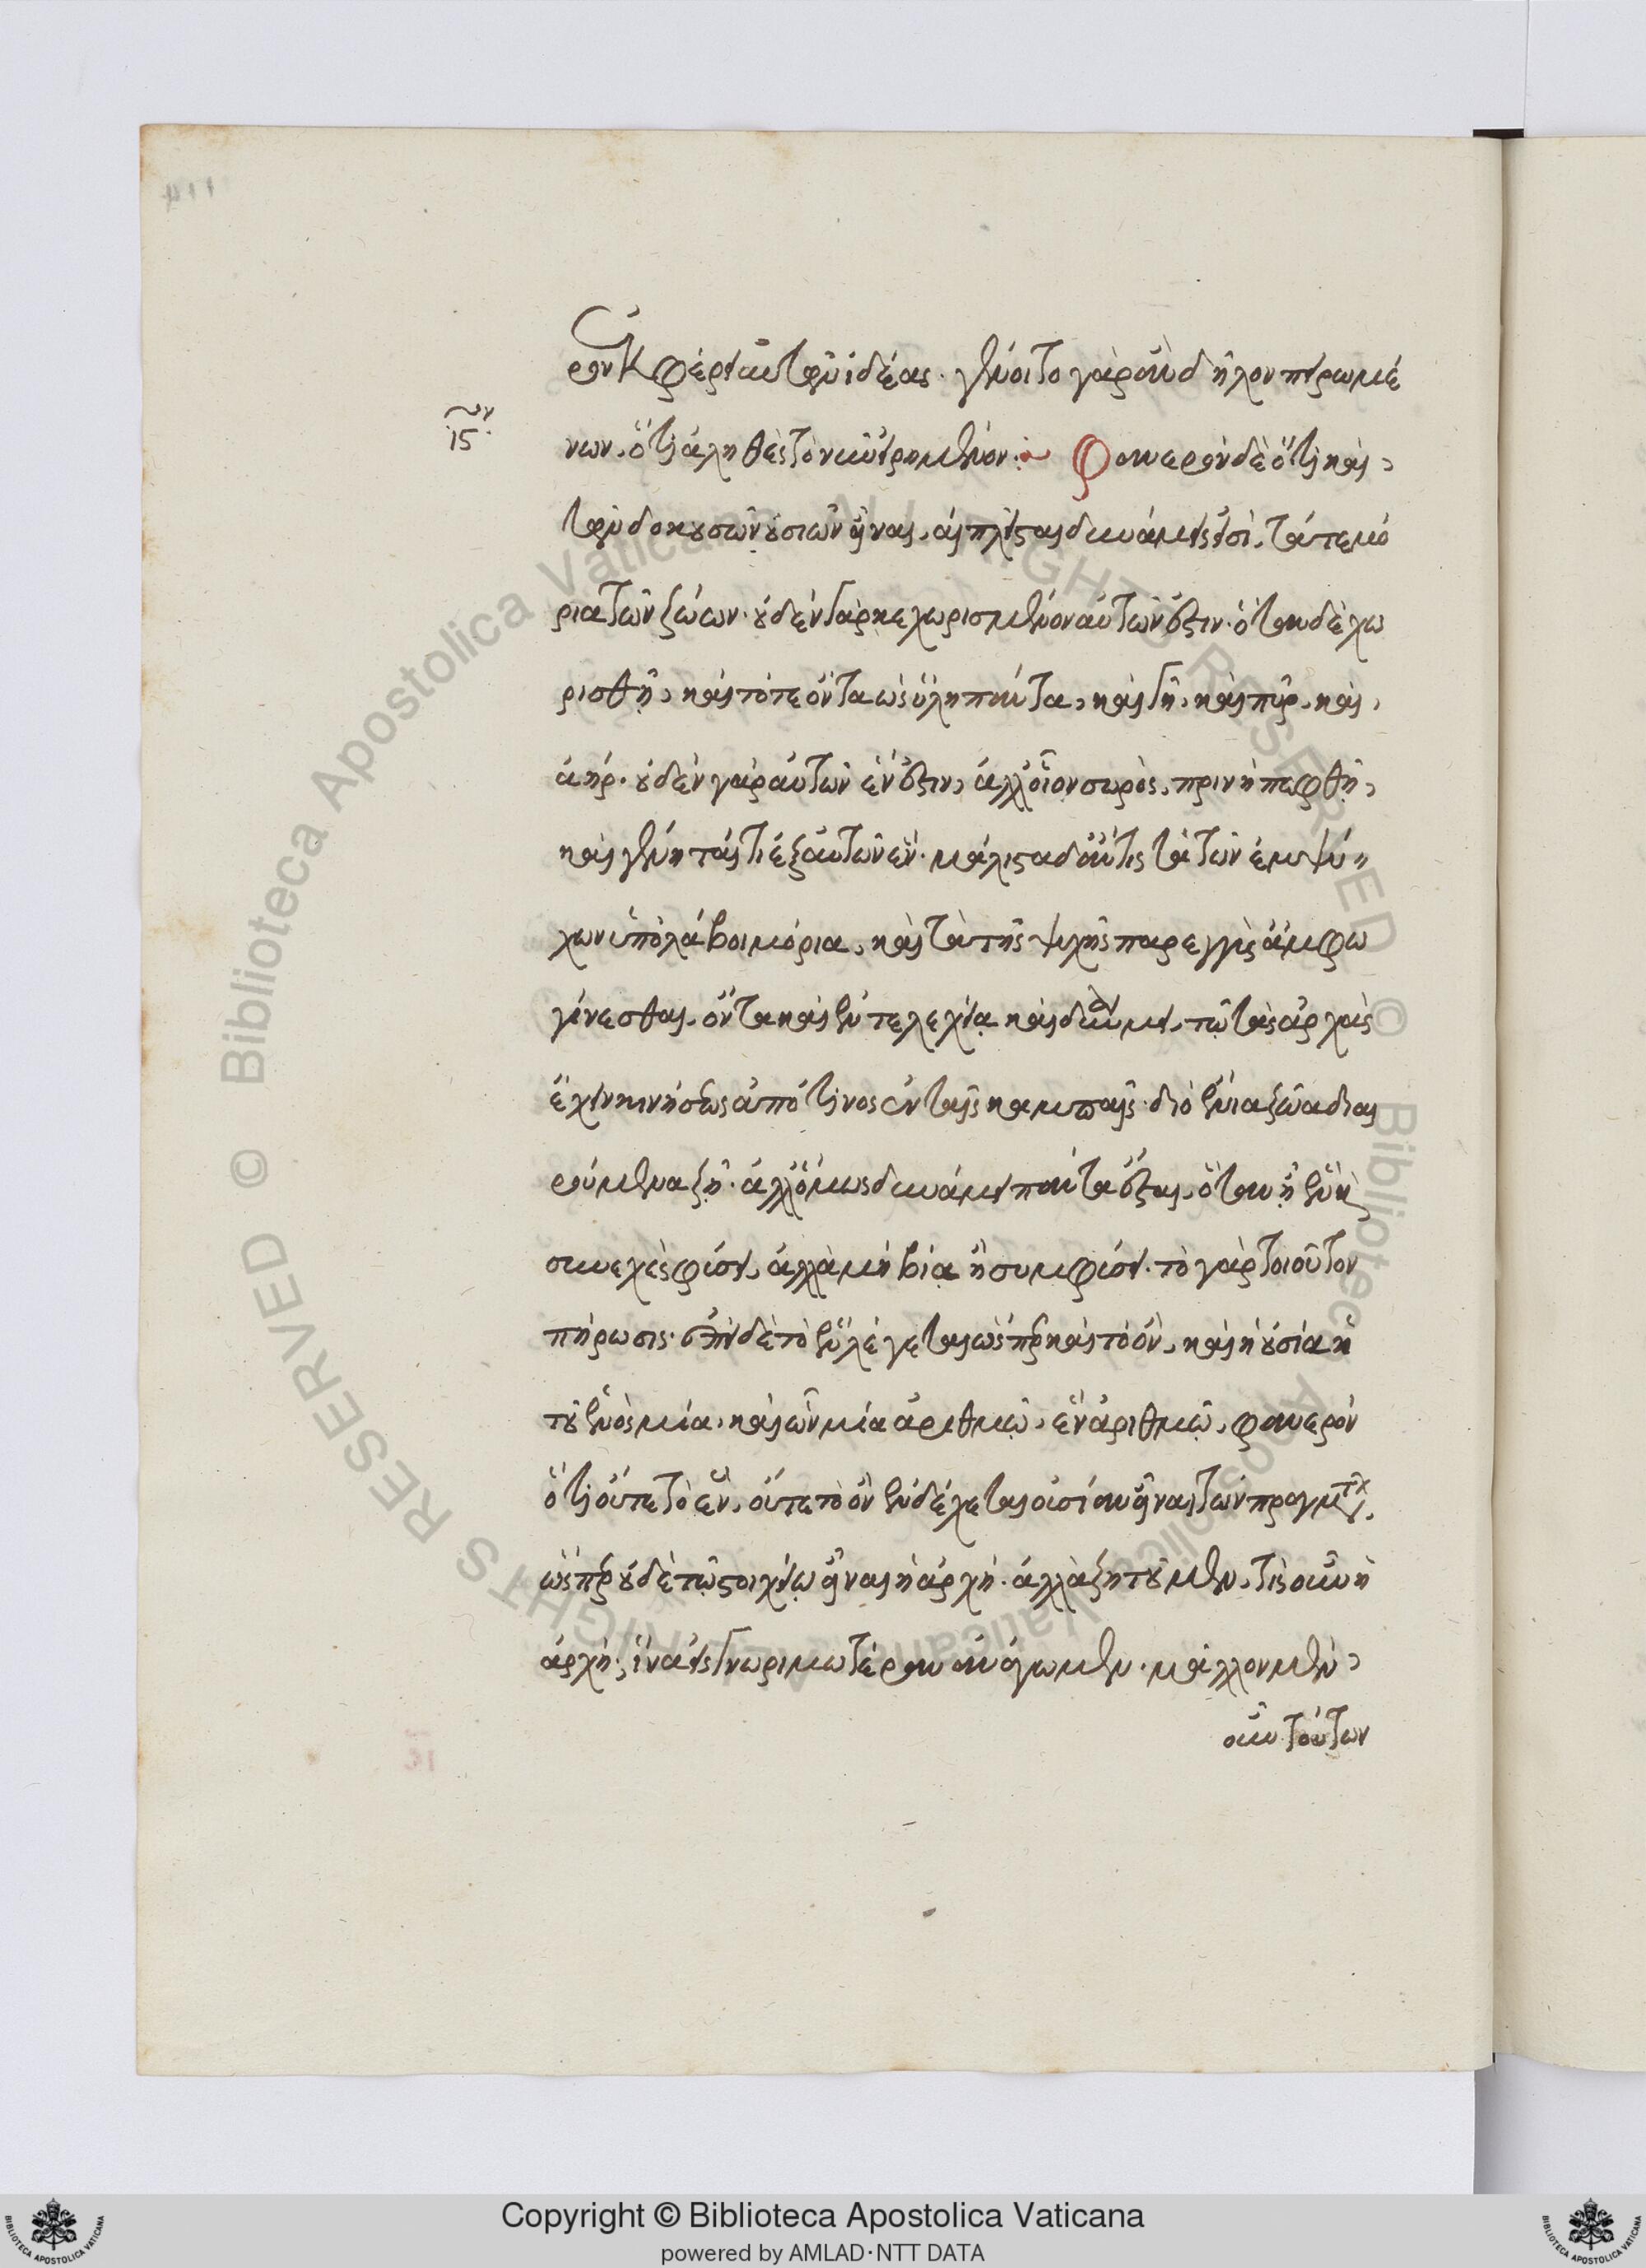 ρον ἐκφέρει αὐτῶν ἰδέας. γένοιτο γὰρ ἂν δῆλον πειρωμέ
ιϛ
νων. ὅτι ἀληθὲς τὸ νῦν εἰρημένον: Φανερὸν δὲ ὅτι καὶ
τῶν δοκουσῶν οὐσιῶν εἶναι. αἱ πλεῖσται δυνάμεις εἰσὶ. τά τε μό
ρια τῶν ζώων. οὐδὲν γὰρ κεχωρισμένον αὐτῶν ἐστιν. ὅταν δὲ χω
ρισθῇ, καὶ τότε ὄντα ὡς ὕλη πάντα, καὶ γῆ, καὶ πῦρ, καὶ
ἀήρ. οὐδὲν γὰρ αὐτῶν ἕν ἐστιν, ἀλλ' οἷον σωρὸς, πρὶν ἢ πεφθῇ,
καὶ γένηταί τι ἐξ αὐτῶν ἕν. μάλιστα δ' ἄν τις τὰ τῶν ἐμψύ
χων ὑπολάβοι μόρια, καὶ τὰ τῆς ψυχῆς πάρεγγυς ἄμφω
γίνεσθαι. ὄντα καὶ ἐντελεχείᾳ καὶ δυνάμει. τῷ τὰς ἀρχὰς
ἔχειν κινήσεως ἀπό τινος ἐν ταῖς καμπαῖς. διὸ ἔνια ζῶα διαι
ρούμενα ζῇ. ἀλλ' ὅμως δυνάμει πάντα ἔσται. ὅταν ᾖ ἓν καὶ
συνεχὲς φύσει. ἀλλὰ μὴ βίᾳ ἢ συμφύσει. τὸ γὰρ τοιοῦτον
πήρωσις. ἐπεὶ δὲ τὸ ἓν λέγεται ὥσπερ καὶ τὸ ὄν. καὶ ἡ οὐσία ἡ
τοῦ ἑνὸς μία. καὶ ὧν μία ἀριθμῷ. ἓν ἀριθμῷ. φανερὸν
ὅτι οὔτε τὸ ἕν. οὔτε τὸ ὂν ἐνδέχεται οὐσίαν εἶναι τῶν πραγμάτων.
ὥσπερ οὐδὲ τῷ στοιχείῳ εἶναι ἢ ἀρχῇ. ἀλλὰ ζητοῦμεν. τίς οὖν ἡ
ἀρχή; ἵνα εἰς γνωριμώτερον ἀνάγωμεν. μᾶλλον μὲν
οὖν τούτων
Copyright © Biblioteca Apostolica Vaticana
powered by AMLAD·NTT DATA